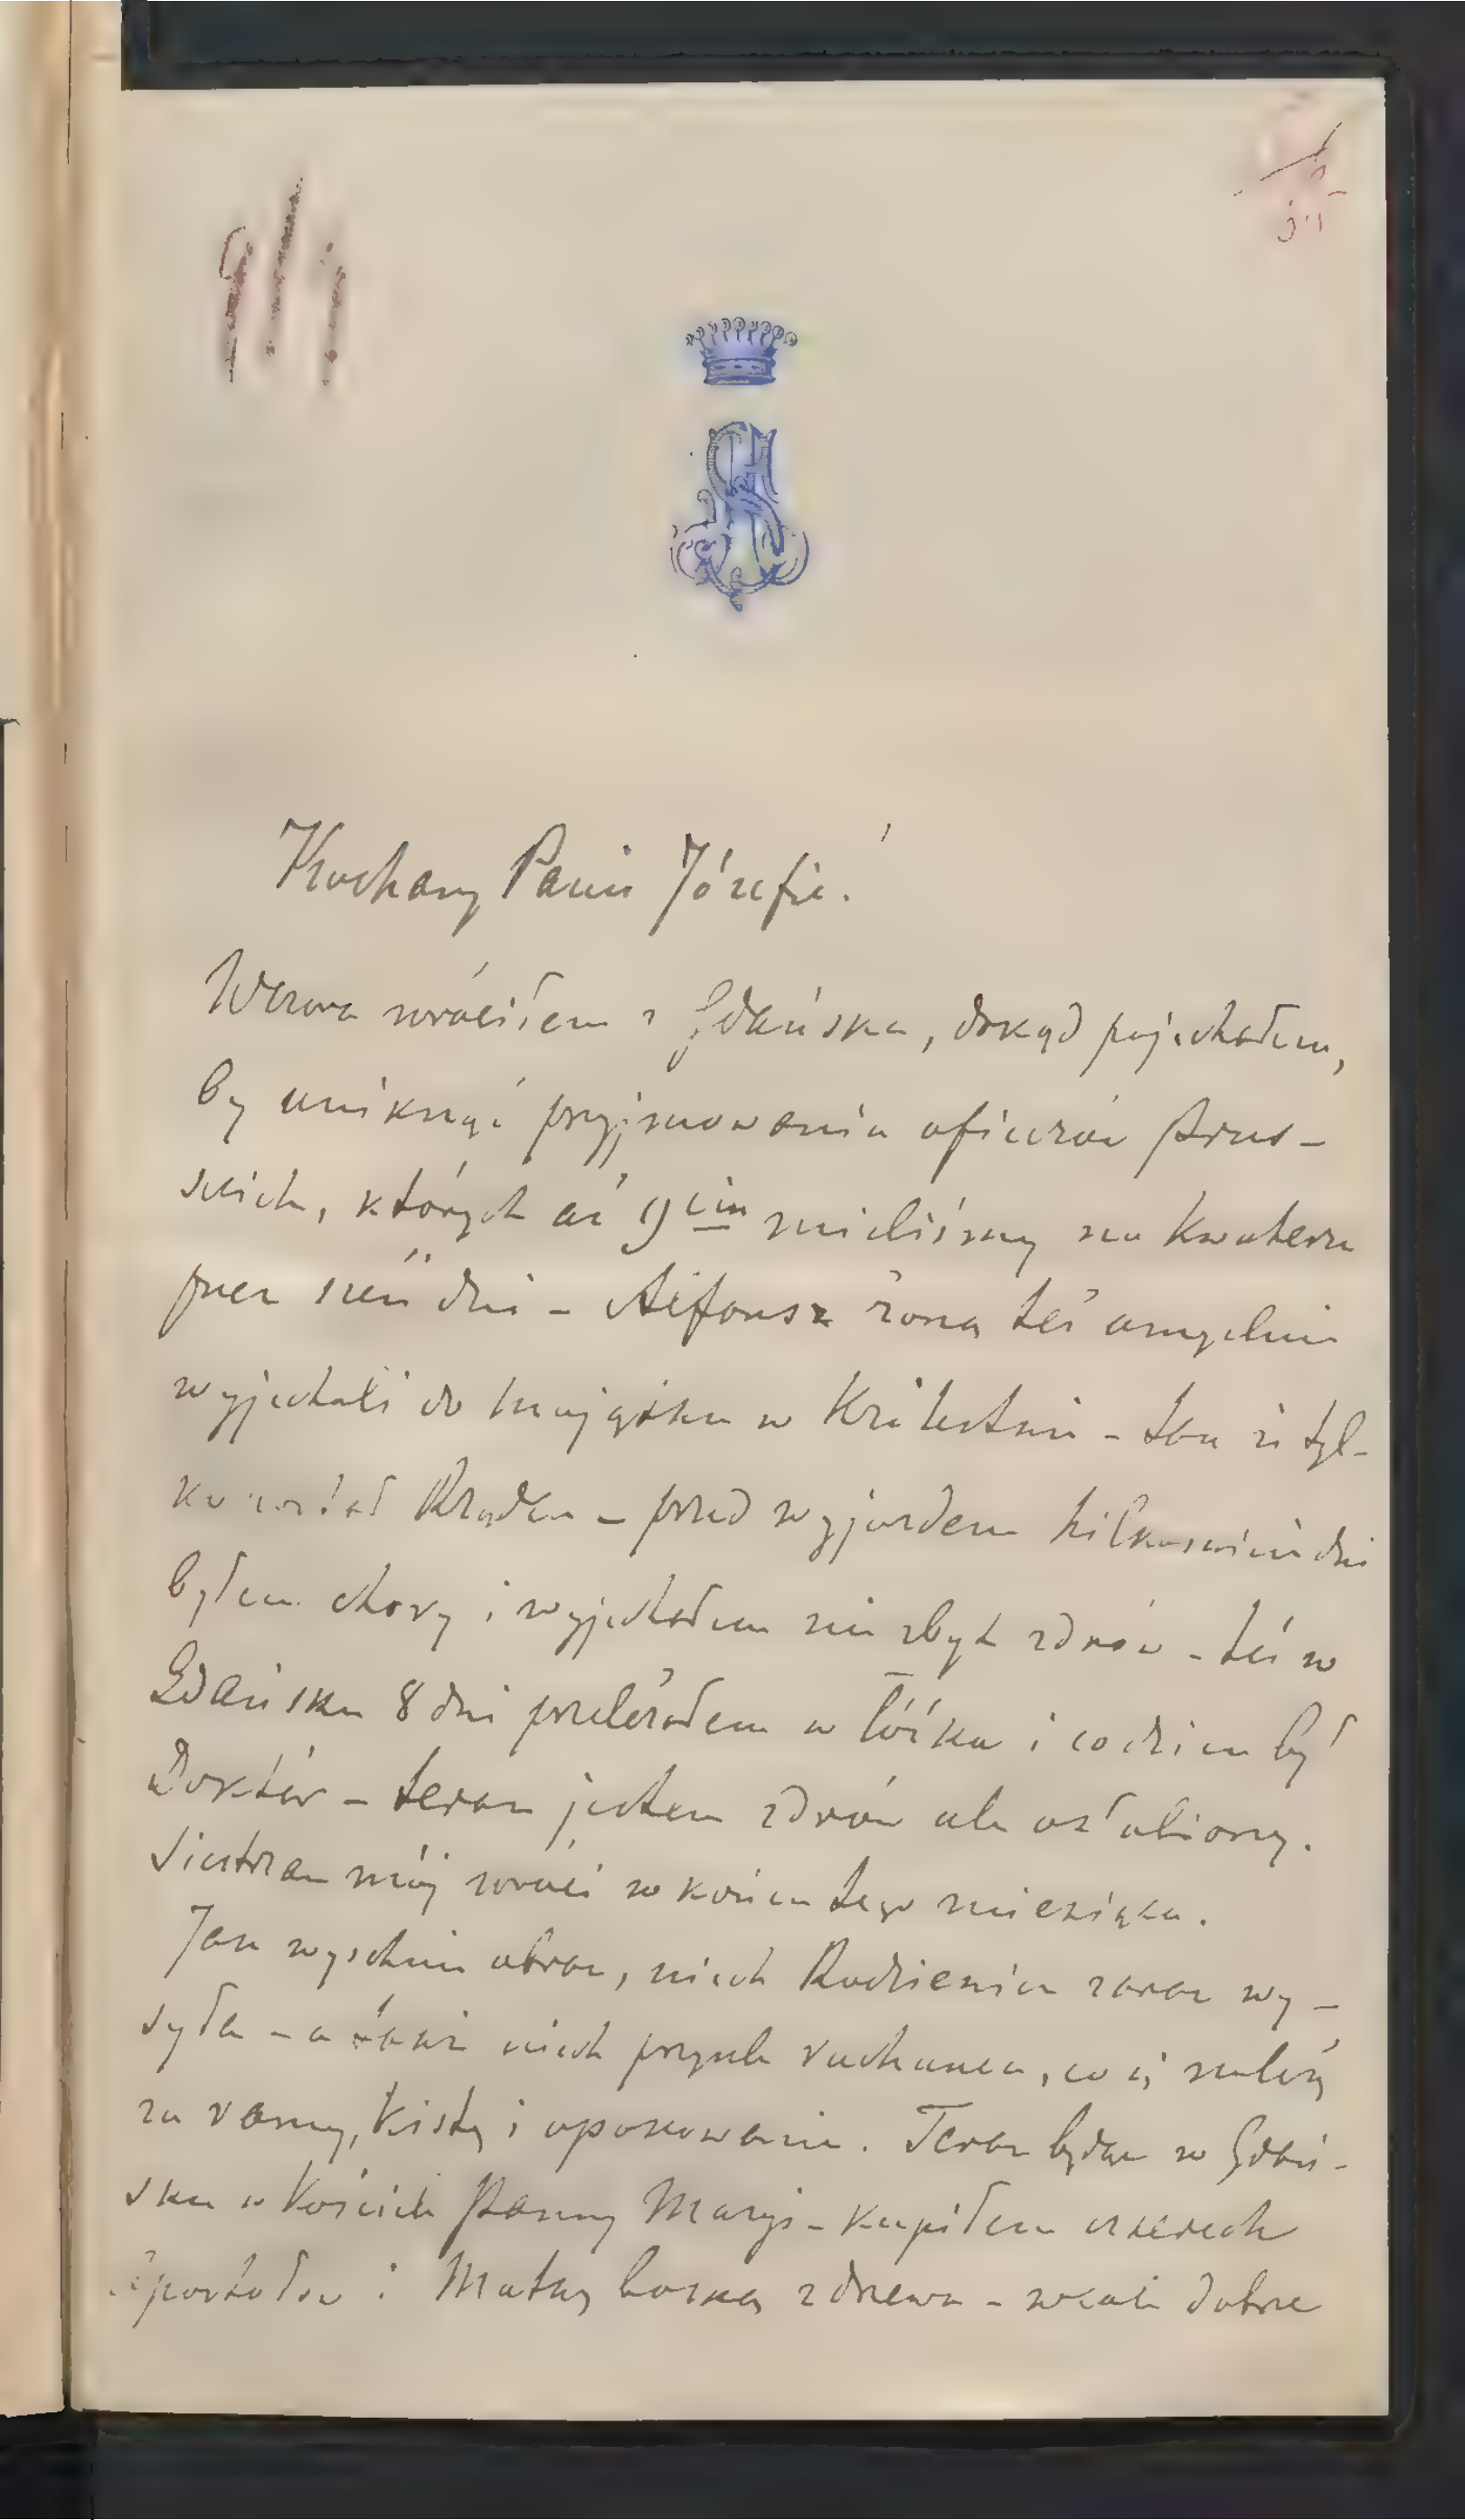 Kochany Panie Józefie!
Wczora wróciłem z Gdańska, dokąd pojechałem,
by uniknąć przyjmowania oficerów Prus-
skich, których aż 9ciu mieliśmy na kwaterze
przez sześć dni - Alfons z żoną też umyślnie
wyjechali do majątku w - tak że tyl-
ko został Rządca - przed wyjazdem dni
byłem chory i wyjechałem nie zbyt zdrów - też w
Gdańsku 8 dni przeleżałem w łóżku i codzien był
Doktór - teraz jestem zdrów ale osłabiony.
Siostrzan mój wróci w końcu tego miesiąca.
Jak wyschnie obraz, niech Rodziewicz zaraz wy-
syła - a także niech przyszle rachunek, co się należy
za ramy, kistę i opakowanie. Teraz będąc w Gdań-
sku w Kościele Panny Maryi - kupiłem czterech
Apostołów i Matkę boską z drzewa - wcale dobrze